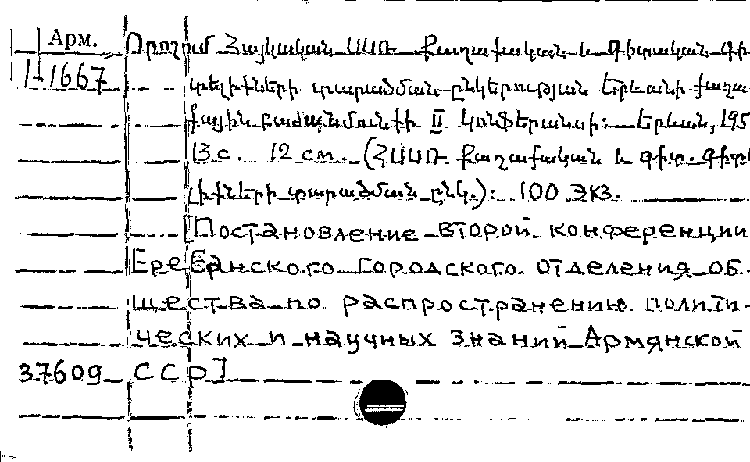 Арм.
Որոշում Հայկական ՍՍՌ Քաղաքական և Գիտական Գի
1-1667 տելիքների տարածման ընկերության Երևանի քաղա
քային բաժանմունքի II կոնֆերանսի: Երևան, 195
13 с. 12 см. (ՀՍՍՌ Քաղաքական և գիտ. գիտե
լիքների տարածման ընկ.): 100 экз.
[Постановление второй конференции
Ереванского городского отделения об-
щества по распространению полити-
ческих и научных знаний Армянской
37609 ССР]